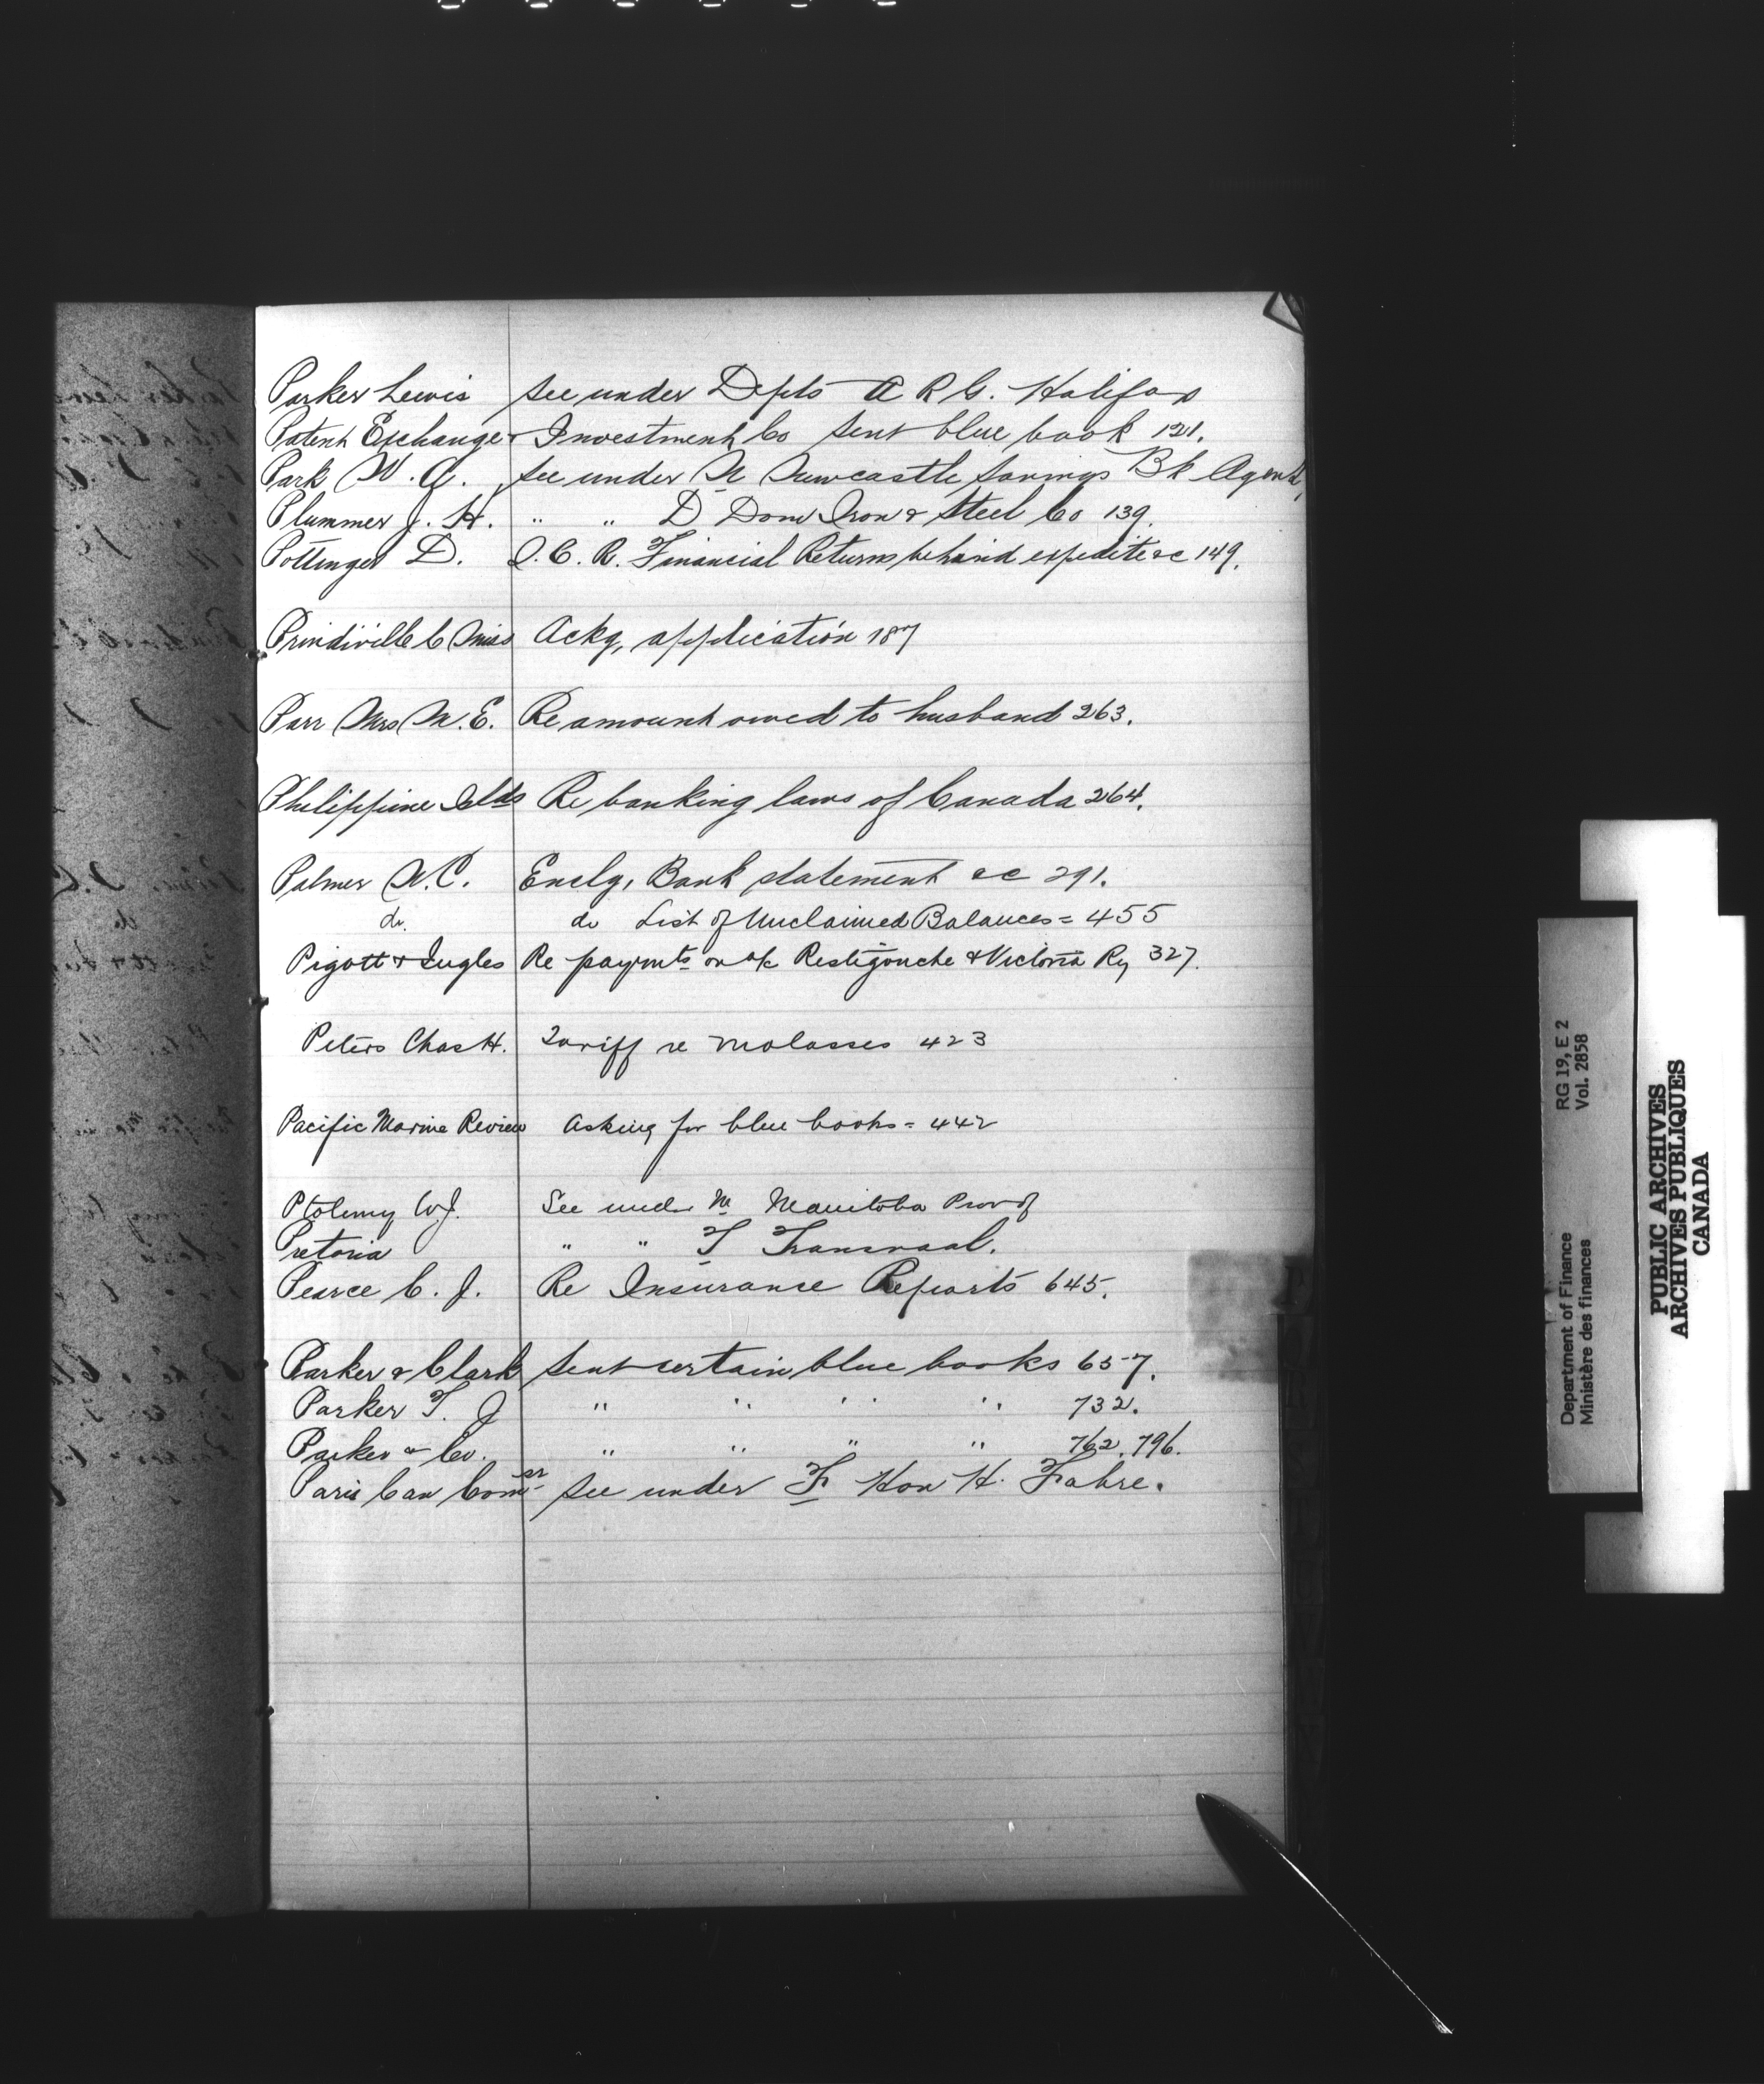 Parker Lewis see under Depts A R G. Halifax
Patent Exchange & Investment Co sent blue book 121.
Park W. A. see under N Newcastle Savings Bk Agent,
Plummer J. H. " " D Dom Iron & Steel Co 139.
Pottinger D. I. C. R. Financial Returns behind expedite &c 149.
Prindiville C Miss Ackg, application 187
Parr Mrs M. E. Re amount owed to husband 263.
Philippine Islds Re banking laws of Canada 264.
Palmer W. C. Enclg, Bank statement &c 291.
do. do List of Unclaimed Balances = 455
Pigott & Ingles Re paymts on a/c Restigouche & Victoria Ry 327.
Peters Chas H. Tariff re molasses 423
Pacific Marine Review asking for blue books = 442
Ptolemy W J. See under M Manitoba Prov of
Pretoria " " T Transvaal.
Pearce C. J. Re Insurance Reports 645.
Parker & Clark sent certain blue books 657.
Parker T. J " " " " 732.
Parker & Co. " " " " 762. 796.
Paris Can Comsr see under F Hon H. Fabre.
RG 19, E 2
Vol. 2858
Department of Finance
Ministère des finances
PUBLIC ARCHIVES
ARCHIVES PUBLIQUES
CANADA